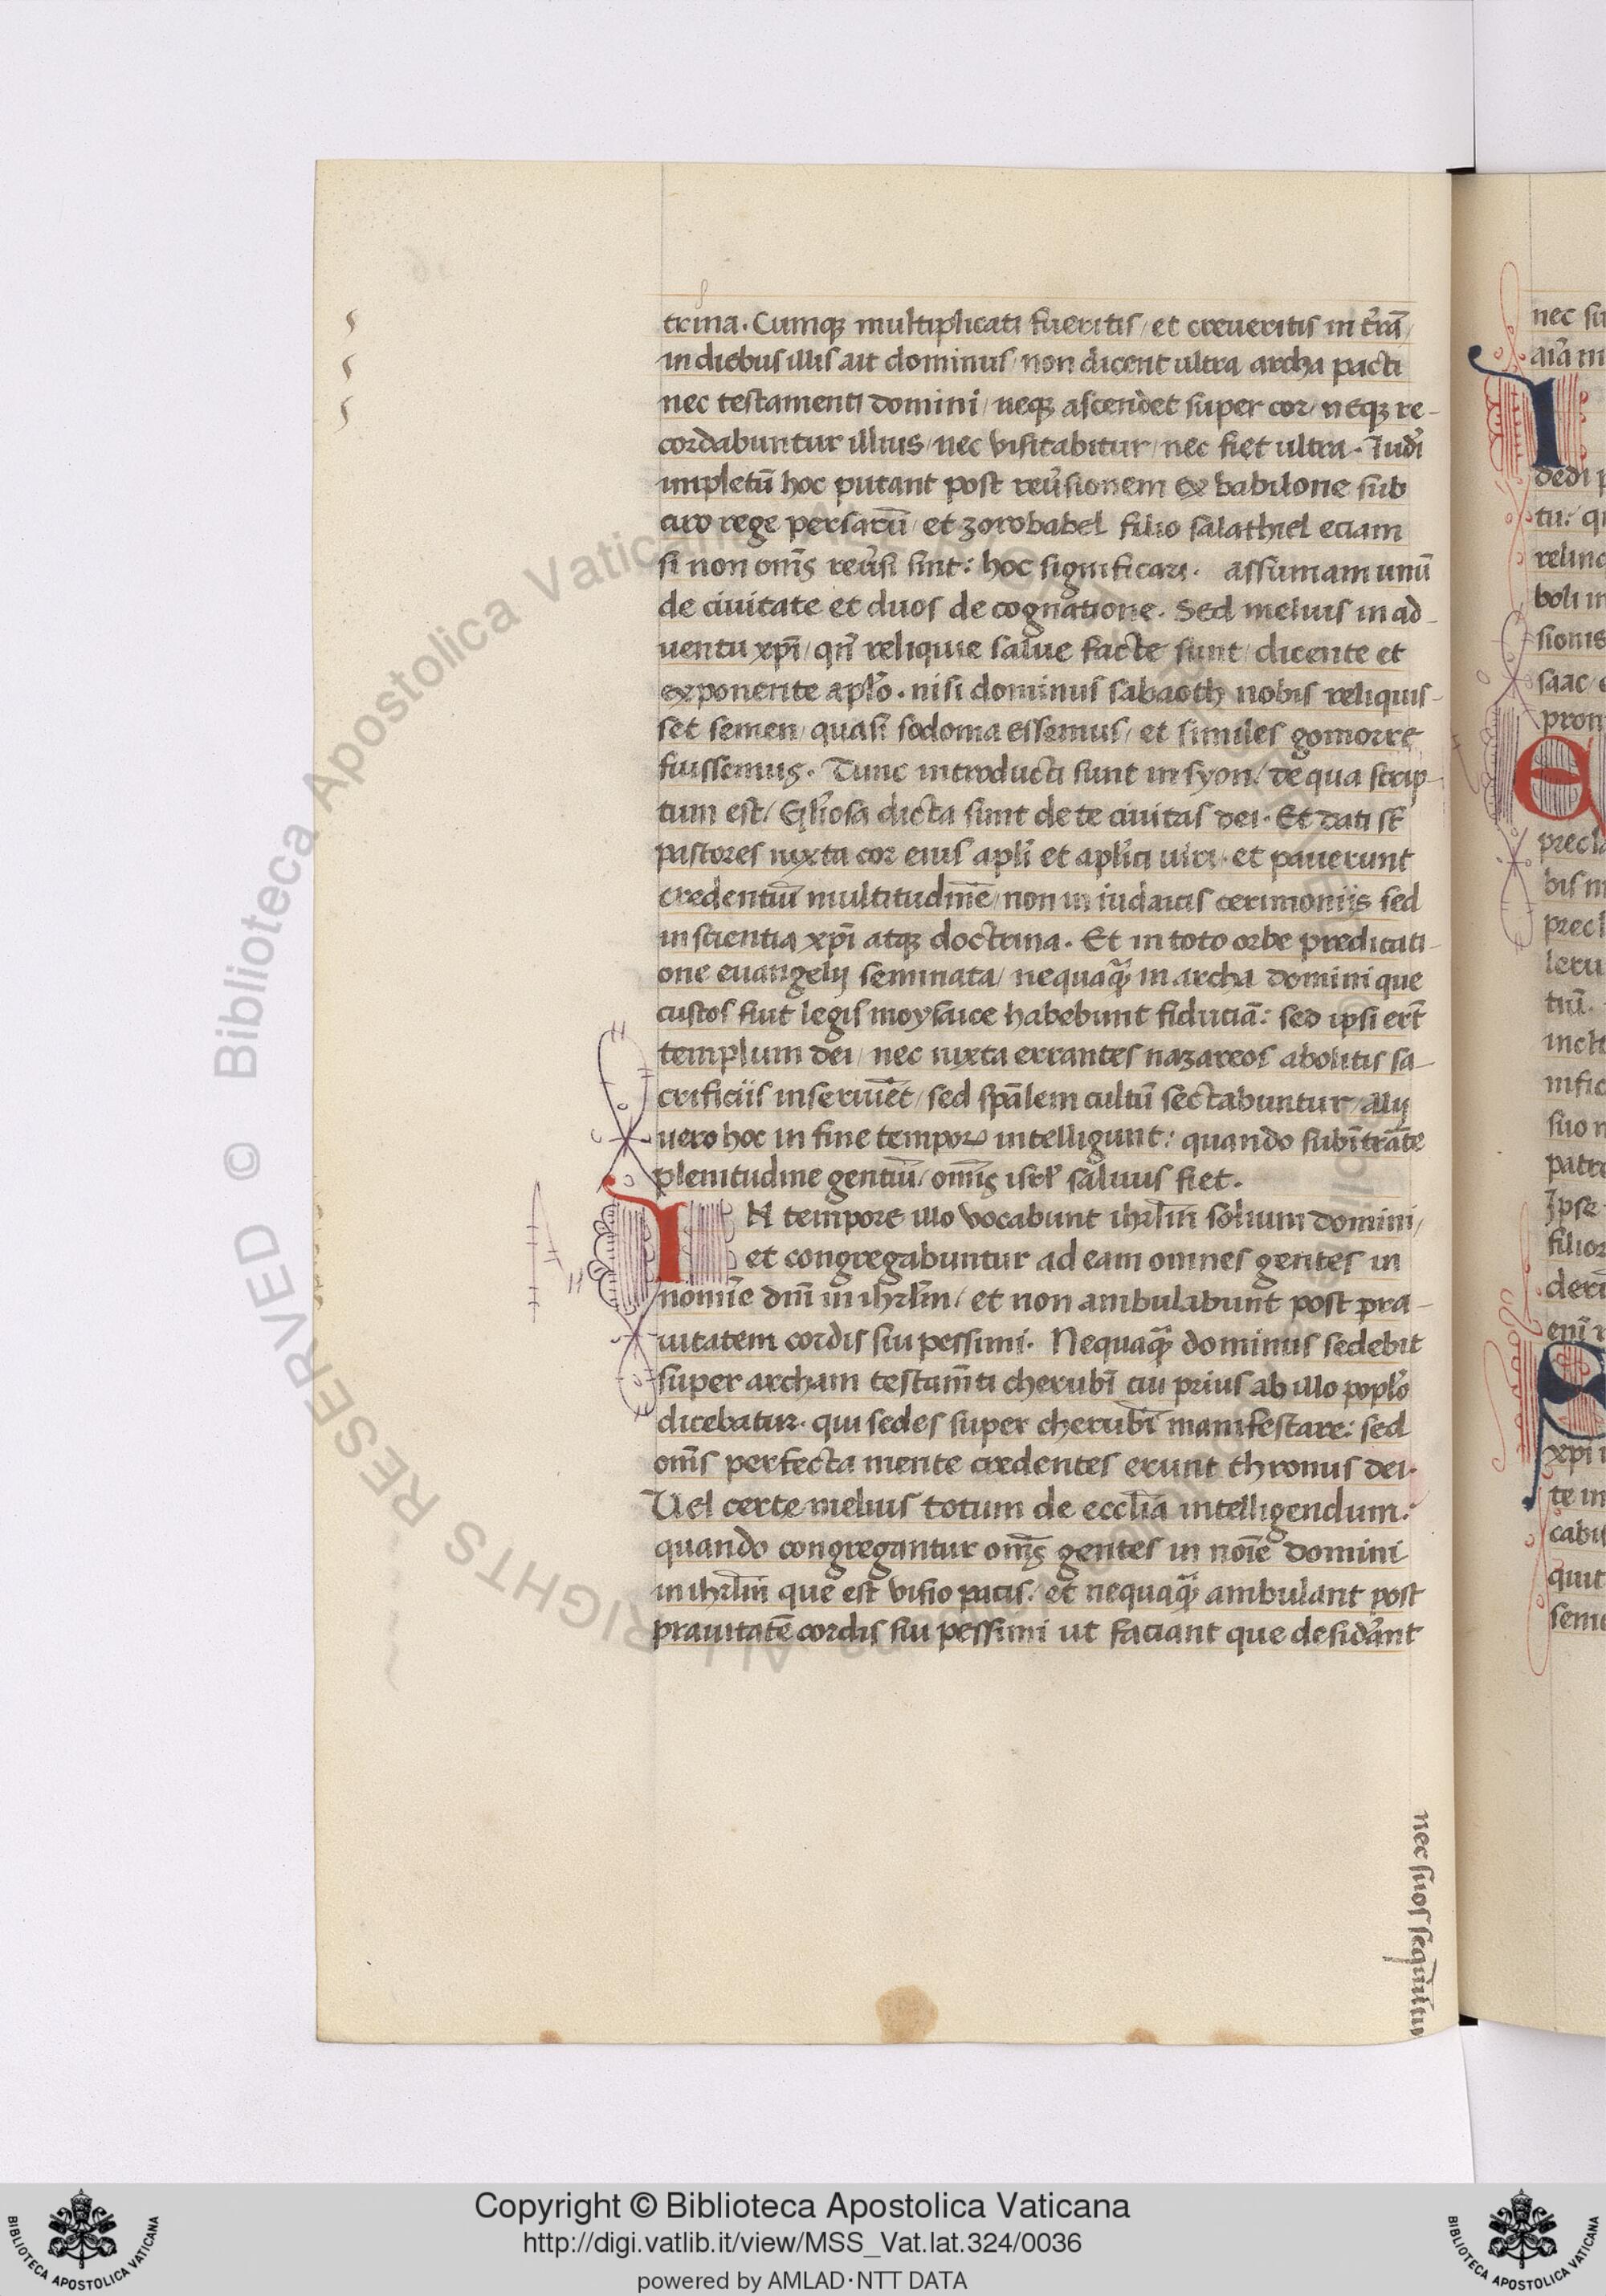 trina. Cumqꝫ multiplicati fueritis / et creueritis in t̓rā /
in diebus illis ait dominus / non dicent ultra archa pacti
nec testamenti domini / neqꝫ ascendet super cor / neqꝫ re-
cordabuntur illius / nec visitabitur / nec fiet ultra. Iud̓i
impletū hoc putant post reu̓sionem ex babilone sub
ciro rege persarū / et zorobabel filio salathiel eciam
si non om̄s reu̓si sint: hoc significari. assumam unū
de ciuitate et duos de cognatione. Sed melius in ad-
uentu xp̄i / qn̄ reliquie salue facte sunt / dicente et
exponente apl̓o. nisi dominus sabaoth nobis reliquis-
set semen / quasi sodoma essemus / et similes gomorre
fuissemus. Tunc introducti sunt in syon / de qua scrip-
tum est / Gl̓iosa dicta sunt de te ciuitas dei. Et dati st̄
pastores iuxta cor eius apl̓i et apl̓ici uiri. et pauerunt
credentiū multitudinē / non in iudaicis cerimoniis sed
in scientia xp̄i atqꝫ doctrina. Et in toto orbe predicati-
one euangelij seminata / nequaqᷓ in archa domini que
custos fuit legis moysaice habebunt fiduciā: sed ipsi er̄t
templum dei / nec iuxta errantes nazareos abolitis sa-
crificiis inseruiēt / sed sp̄alem cultū sectabuntur / alij
uero hoc in fine temporꝝ intelligunt: quando subint̓rāte
plenitudine gentiū / om̄is isrl̓ saluus fiet.
IN tempore illo vocabunt ihrl̄m solium domini /
et congregabuntur ad eam omnes gentes in
nomīe dn̄i in ihrl̄m / et non ambulabunt post pra-
uitatem cordis sui pessimi. Nequaqᷓ dominus sedebit
super archam testam̄ti cherubī cui prius ab illo popl̓o
dicebatur. qui sedes super cherubī manifestare: sed
om̄s perfecta mente credentes erunt thronus dei.
Vel certe melius totum de eccl̄ia intelligendum:
quando congregantur om̄s gentes in noīe domini
in ihrl̄m que est visio pacis / et nequaqᷓ ambulant post
prauitatē cordis sui pessimi ut faciant que desid̓ant
nec suos sequūtur
nec su
aīa m
I
dedi p
tu: q
relinq
boli in
sionis
saac
pron
E
precla
bis m
precl
leru
tnī.
inclt
nific
suo n
patre
Ipse
filior
deri
enī
xp̄i
te in
cabu
quit
seme
© Biblioteca Apostolica Vaticana
ALL RIGHTS RESERVED
Copyright © Biblioteca Apostolica Vaticana
http://digi.vatlib.it/view/MSS_Vat.lat.324/0036
powered by AMLAD·NTT DATA
BIBLIOTECA APOSTOLICA VATICANA
BIBLIOTECA APOSTOLICA VATICANA